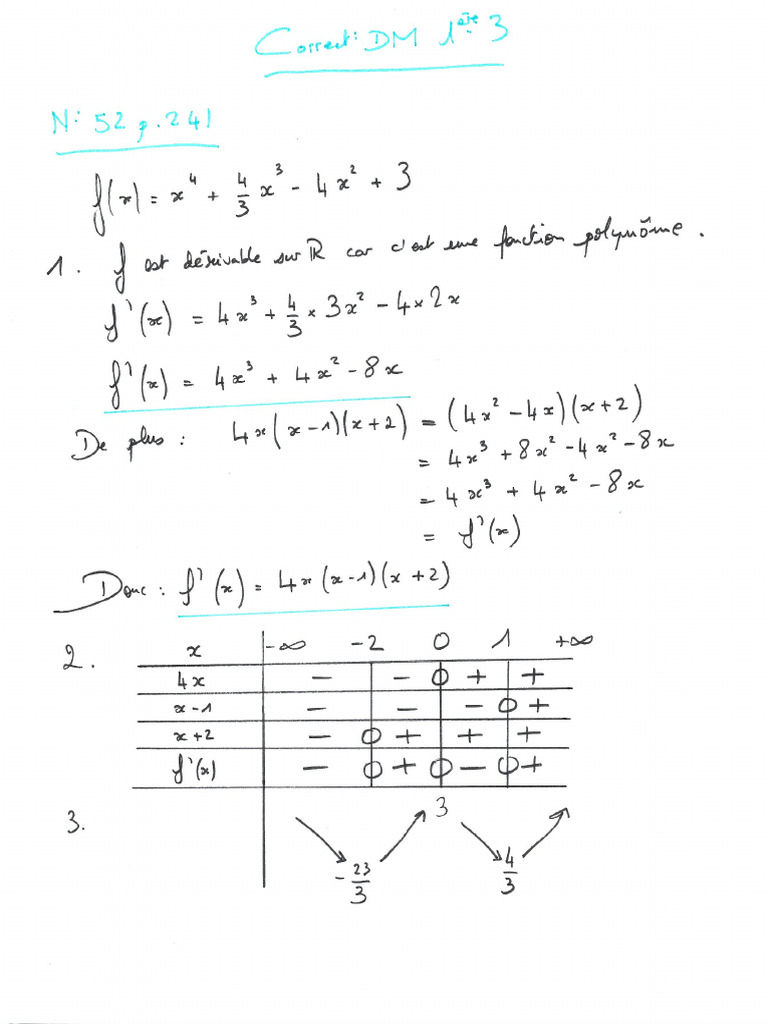 Correct: DM 1ère 3
N: 52 p.241
f(x) = x⁴ + 4/3 x³ - 4x² + 3
1. f est dérivable sur ℝ car c'est une fonction polynôme.
f'(x) = 4x³ + 4/3 × 3x² - 4 × 2x
f'(x) = 4x³ + 4x² - 8x
De plus : 4x(x-1)(x+2) = (4x² - 4x)(x+2)
= 4x³ + 8x² - 4x² - 8x
= 4x³ + 4x² - 8x
= f'(x)
Donc : f'(x) = 4x(x-1)(x+2)
2. x -∞ -2 0 1 +∞
4x - - 0 + +
x-1 - - - 0 +
x+2 - 0 + + +
f'(x) - 0 + 0 - 0 +
3. ↘ -23/3 ↗ 3 ↘ 4/3 ↗